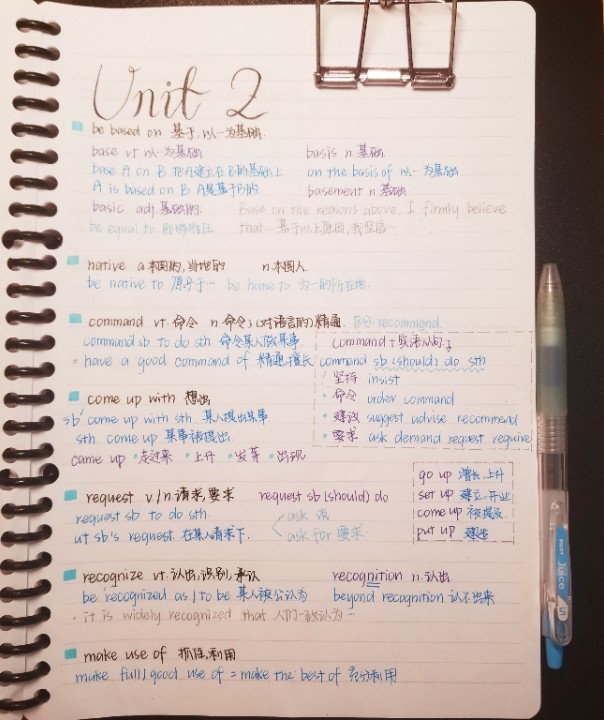 Unit 2
be based on 基于,以…为基础
base vt 以…为基础 basis n 基础
base A on B 把A建立在B的基础上 on the basis of 以…为基础
A is based on B A是基于B的 basement n 基础
basic adj 基础的 Base on the reasons above, I firmly believe
be equal to 能够胜任 that… 基于以上原因,我坚信…
native a 本国的,当地的 n 本国人
be native to 原产于… be home to 为…的所在地
command vt 命令 n 命令;(对语言的)精通 区分 recommend
command sb to do sth 命令某人做某事 command + 宾语从句
have a good command of 精通,擅长 command sb (should) do sth
坚持 insist
命令 order command
建议 suggest advise recommend
要求 ask demand request require
come up with 想出
sb come up with sth 某人提出某事
sth come up 某事被提出
came up 走过来 上升 发芽 出现
request v/n 请求,要求 request sb (should) do
request sb to do sth ask 请
at sb's request 在某人请求下 ask for 要求
go up 增长,上升
set up 建立,开业
come up 被提及
put up 建造
recognize vt 认出,识别,承认 recognition n 认出
be recognized as / to be 某人被公认为 beyond recognition 认不出来
it is widely recognized that 人们一致认为…
make use of 抓住,利用
make full/good use of = make the best of 充分利用
PILOT Juice